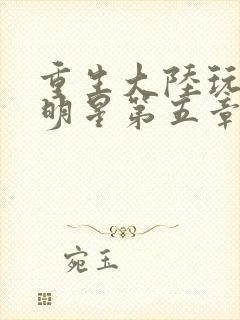 重生大陆玩
明星第五章
宛玉